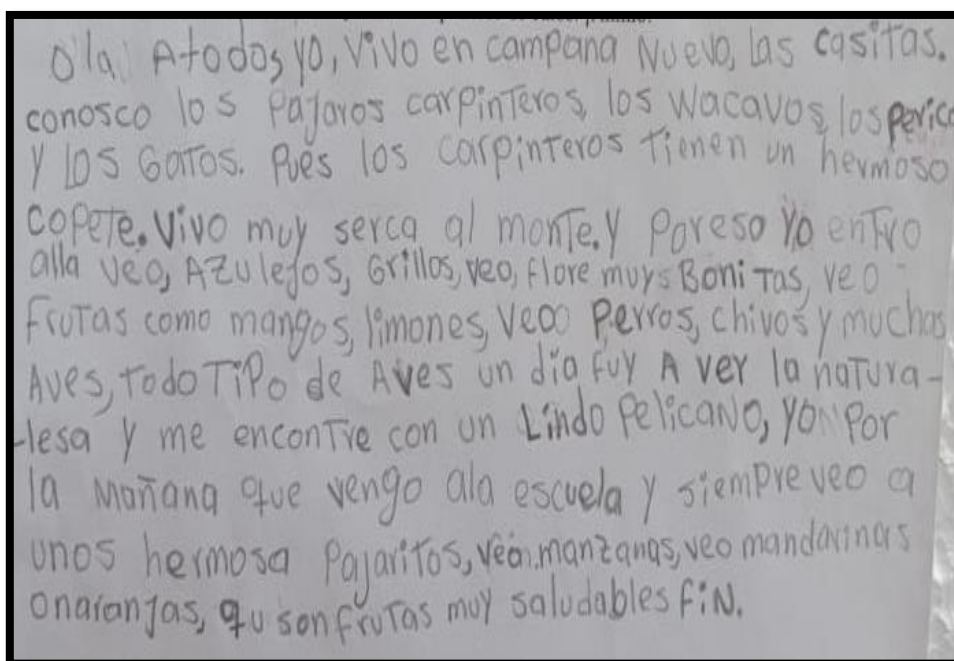 Ola Atodos yo, vivo en campana Nuevo, las casitas.
conosco los Pajaros carpinteros, los Wacavos, los peric
y los Gatos. Pues los carpinteros tienen un hermoso
copete. Vivo muy serca al monte. y Poreso Yo entro
alla veo, Azulejos, Grillos, veo, flore muys Bonitas, veo
Frutas como mangos, limones, veoo perros, chivos y muchas
Aves, todo tipo de Aves un día fuy A ver la natura-
-lesa y me encontre con un Lindo Pelicano, yo Por
la mañana que vengo ala escuela y siempre veo a
unos hermosa Pajaritos, veo manzanas, veo mandarinas
onaranjas, qu son frutas muy saludables FiN.